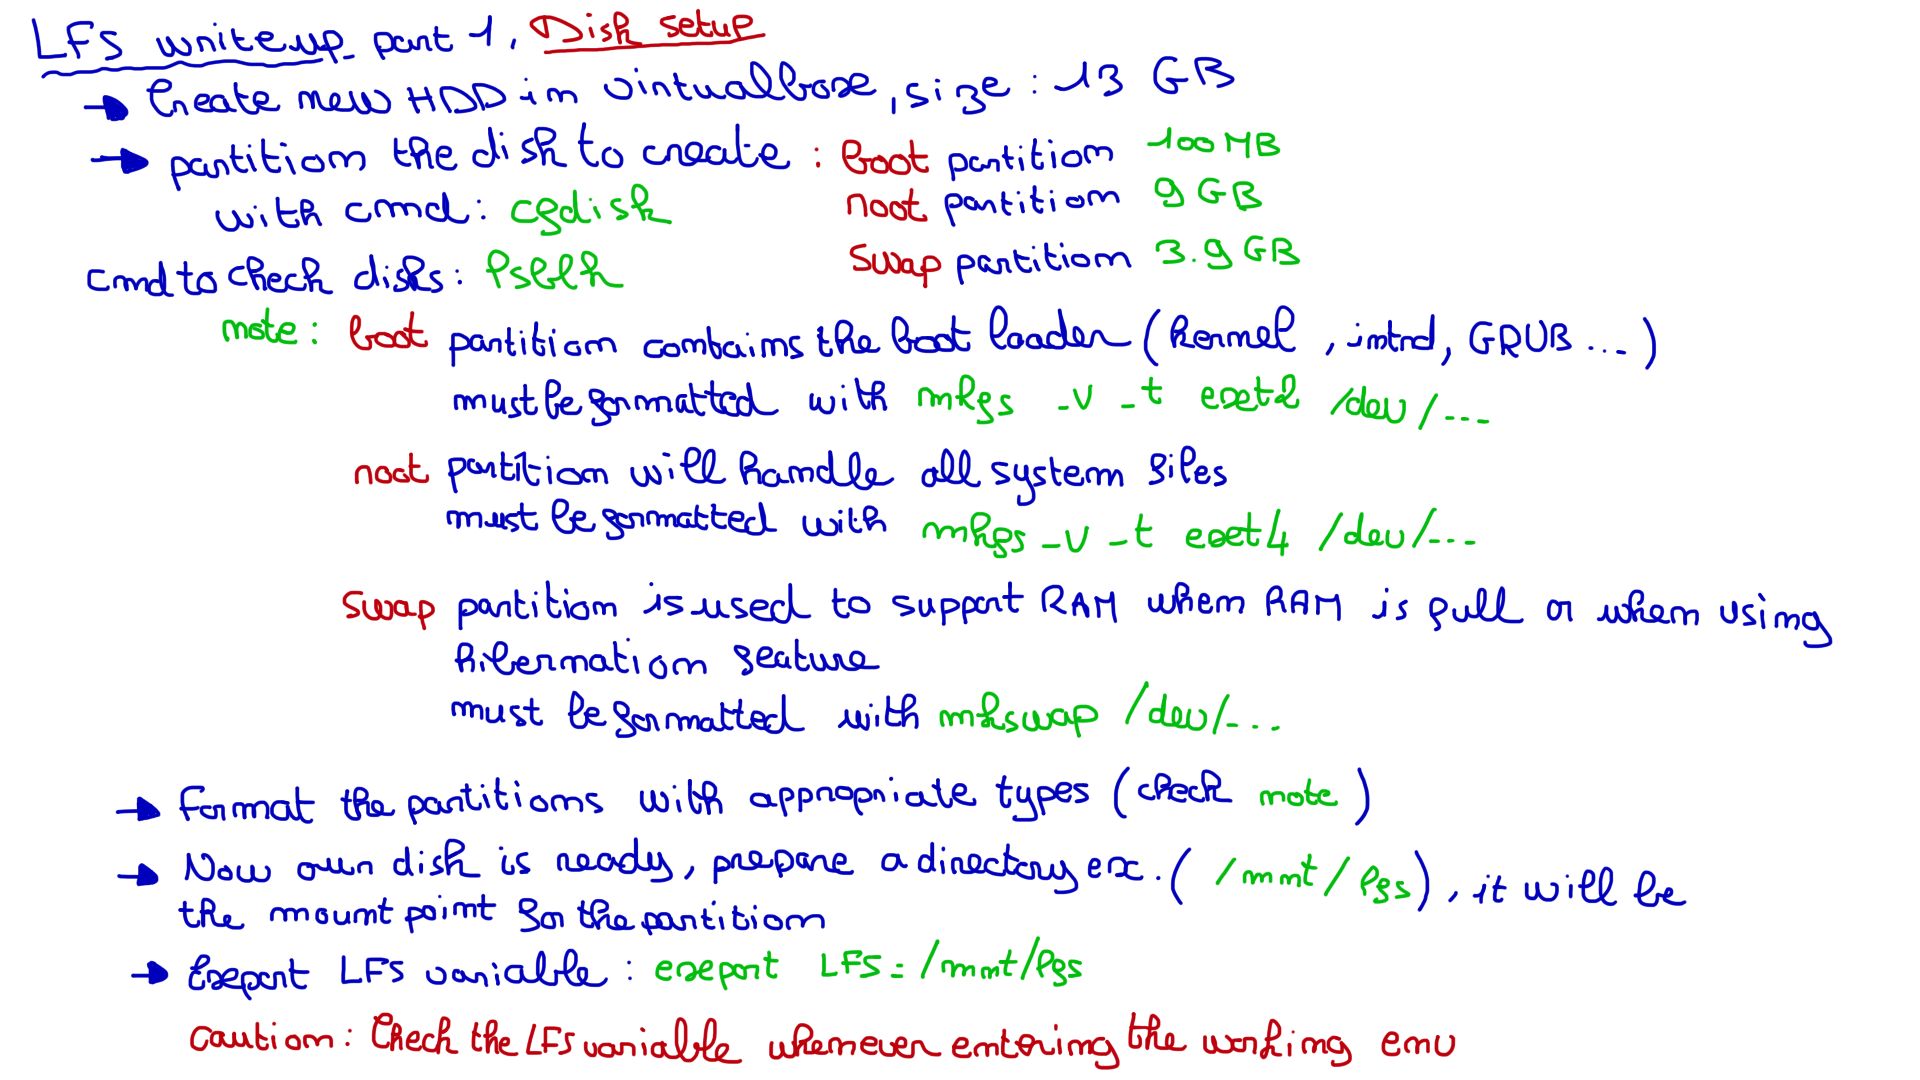 LFS writeup part 1, Disk setup
→ Create new HDD in virtualbox, size : 13 GB
→ partition the disk to create : boot partition 100 MB
with cmd : cgdisk root partition 9 GB
cmd to check disks : lsblk swap partition 3.9 GB
note : boot partition contains the boot loader (kernel , intrd, GRUB ...)
must be formatted with mkfs -v -t ext2 /dev/...
root partition will handle all system files
must be formatted with mkfs -v -t ext4 /dev/...
swap partition is used to support RAM when RAM is full or when using
hibernation feature
must be formatted with mkswap /dev/...
→ Format the partitions with appropriate types (check note)
→ Now our disk is ready, prepare a directory ex. ( /mnt/lfs ), it will be
the mount point for the partition
→ Export LFS variable : export LFS=/mnt/lfs
caution : Check the LFS variable whenever entering the working env